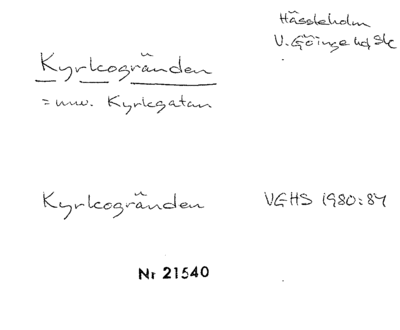 Hässleholm
V. Göinge hd, Sk
Kyrkogränden
= nuv. Kyrkogatan
Kyrkogränden VGHS 1980:84
Nr 21540